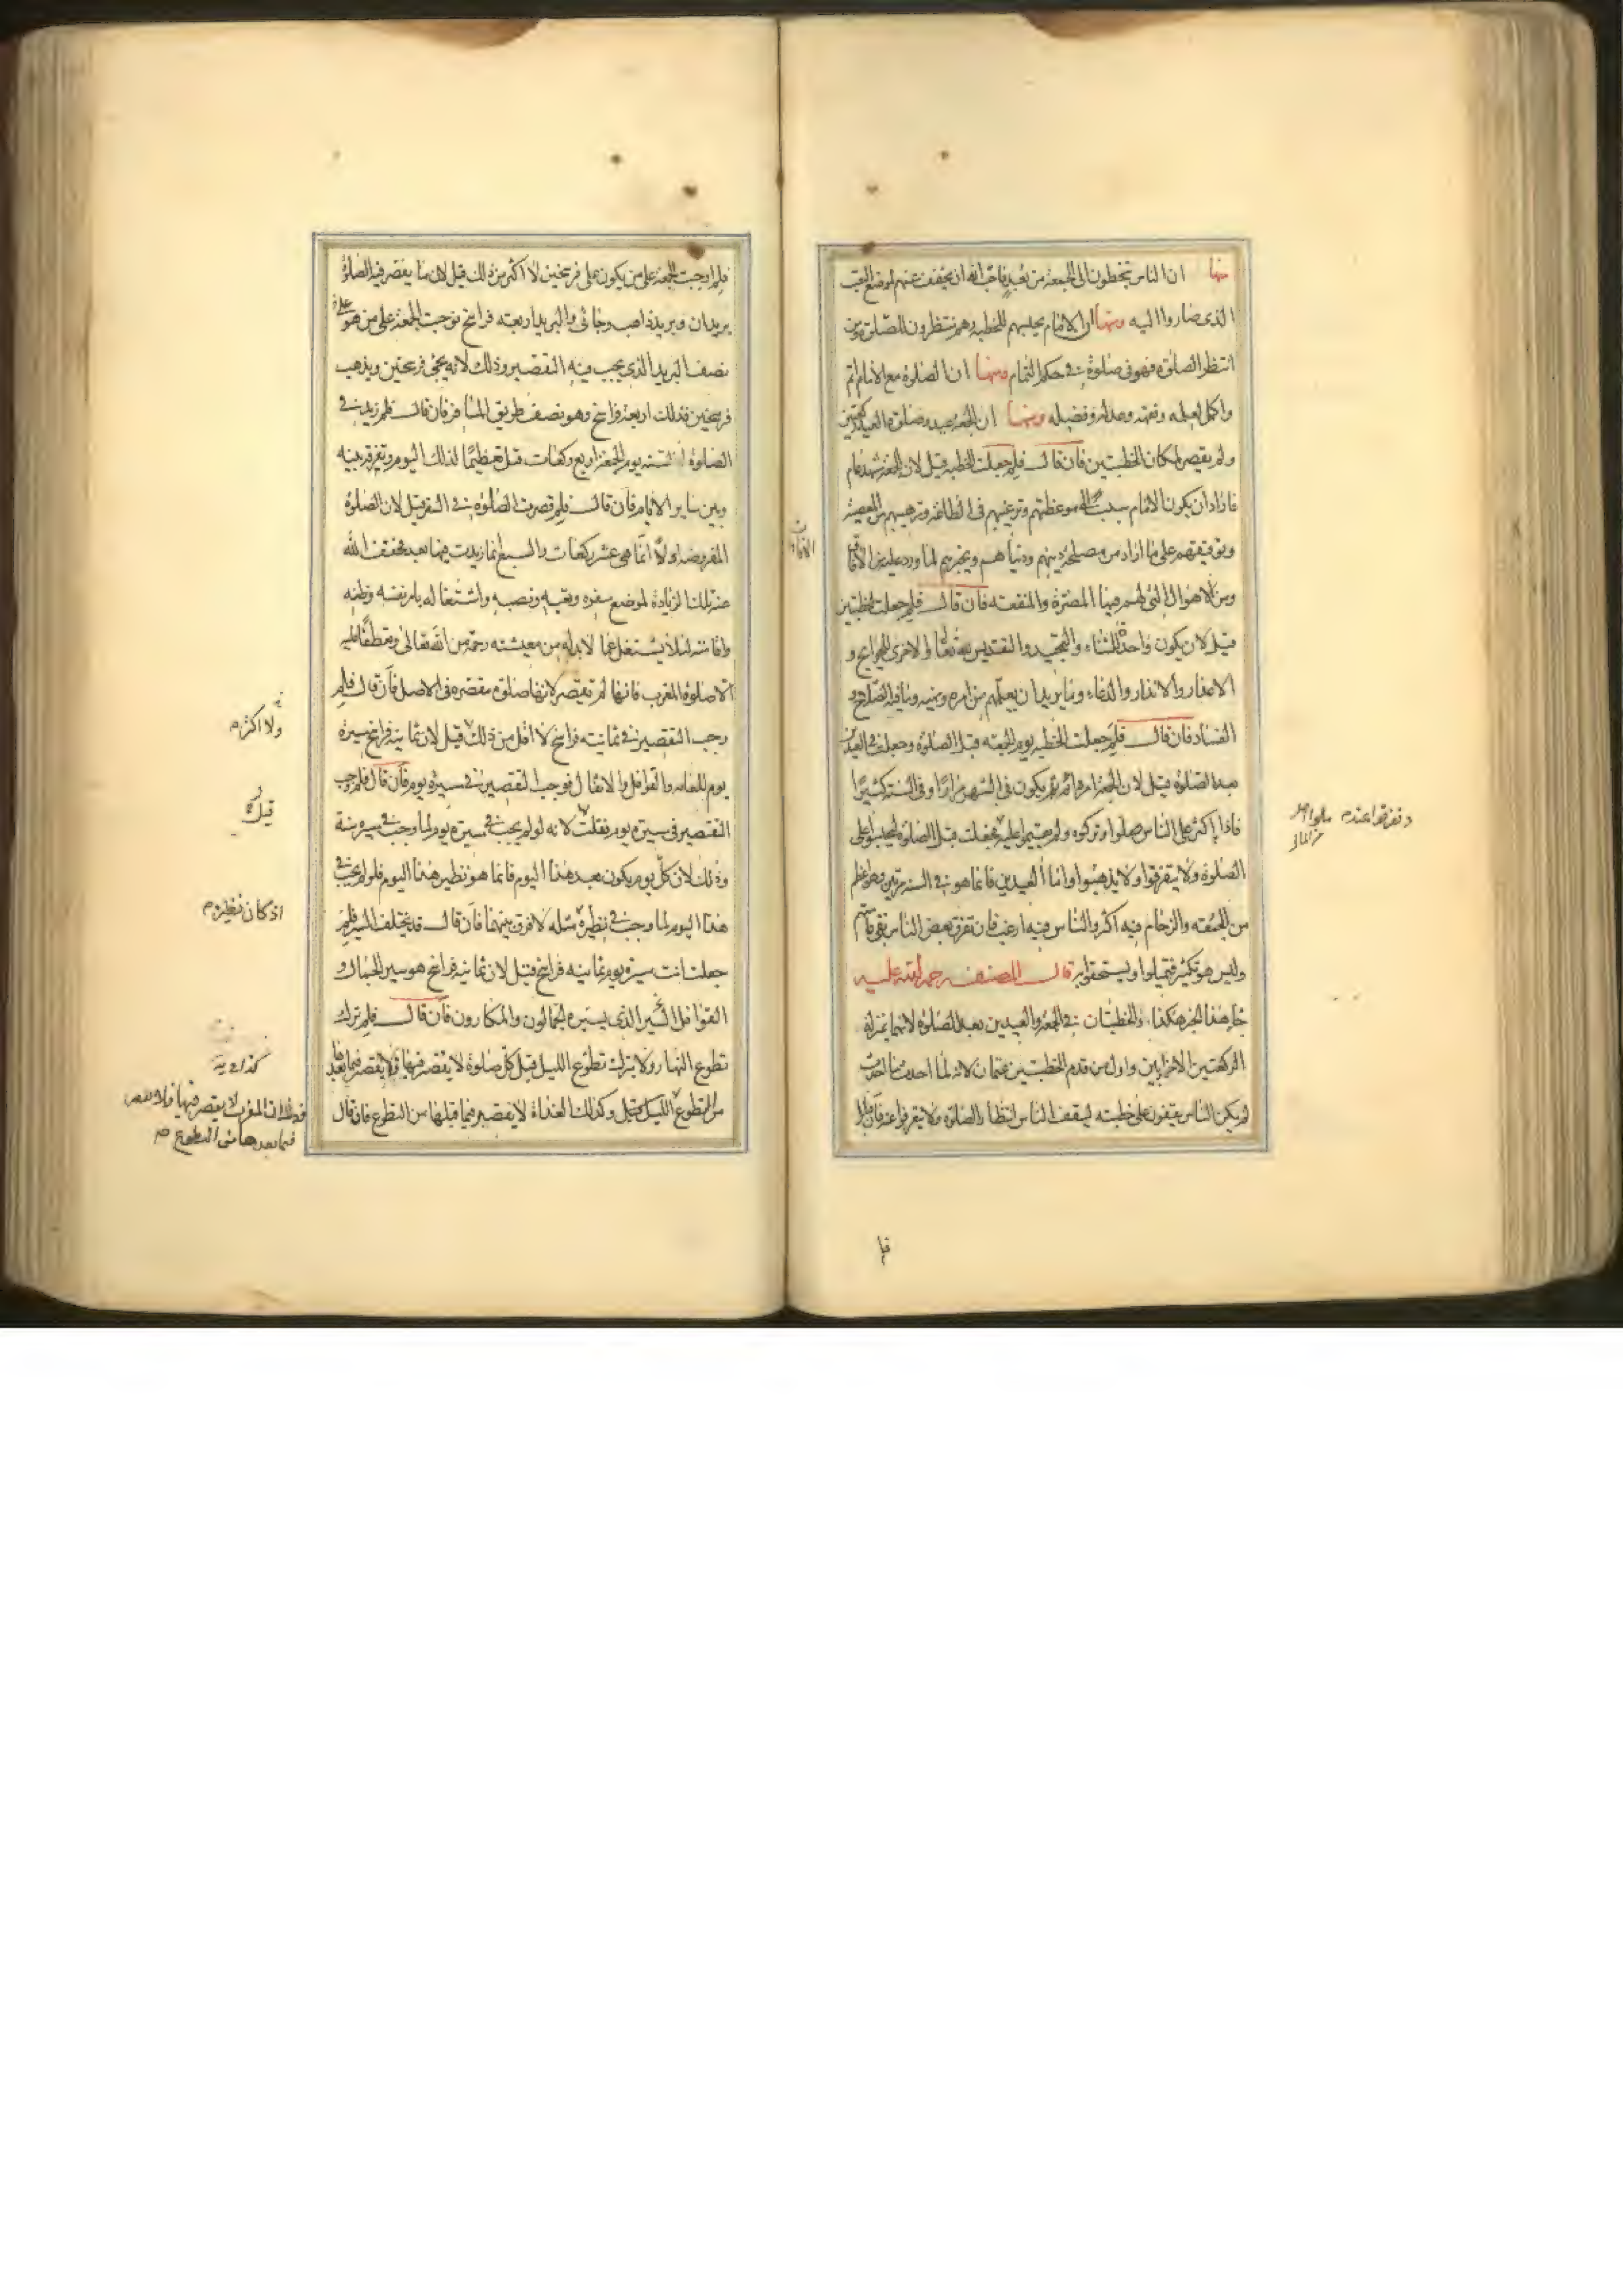 منها ان الناس يتخطون الى الجمعة من بعد فاحب الله ان يخفف عنهم لموضع التعب
الذى صاروا اليه ومنها ان الامام يحبسهم للخطبة وهم منتظرون للصلوة ومن
انتظر الصلوة فهو فى صلوة فى حكم التمام ومنها ان الصلوة مع الامام اتم
واكمل لعلمه وفقهه وعدله وفضله ومنها ان الجمعة عيد وصلوة العيد ركعتين
ولم يقصر لمكان الخطبتين فان قال فلم جعلت الخطبة قيل لان الجمعة مشهد عام
فاراد ان يكون الامام سببا لموعظتهم وترغيبهم فى الطاعة وترهيبهم من المعصية
وتوقيفهم على ما اراد من مصلحة دينهم ودنياهم ويخبرهم لما ورد عليه من الافاق
ومن الاهوال التى لهم فيها المضرة والمنفعة فان قال فلم جعلت خطبتين
قيل لان يكون واحدة للثناء والتمجيد والتقديس لله تعالى والاخرى للحوايج و
الاعذار والانذار والدعاء وما يريد ان يعلمهم من امره ونهيه وما فيه الصلاح و
الفساد فان قال فلم جعلت الخطبة يوم الجمعة قبل الصلوة وجعلت فى العيدين
بعد الصلوة قيل لان الجمعة امر دائم يكون فى الشهر مرارا وفى السنة كثيرا
فاذا اكثر على الناس صلوا وتركوه ولم يقيموا عليه فجعلت قبل الصلوة ليحتبسوا على
الصلوة ولا يتفرقوا ولا يذهبوا واما العيدين فانما هو فى السنة مرتين وهو اعظم
من الجمعة والزحام فيه اكثر والناس فيه ارغب فان تفرق بعض الناس بقى عامتهم
وليس هو بكثير فيملوا ويستخفوا به قال المصنف رحمة الله عليه
جا هذا الخبر هكذا والخطبتان فى الجمعة والعيدين بعد الصلوة لانهما بمنزلة
الركعتين الاخراوين واول من قدم الخطبتين عثمان لانه لما احدث ما احدث
لم يكن الناس يقفون على خطبته ليقف الناس انتظارا للصلوة ولا يتفرقوا عنه فان قال
وتفرقوا عنه
فا
فلم اوجبت الجمعة على من يكون على فرسخين لا اكثر من ذلك قيل لان ما يقصر فيه الصلوة
بريدان وبريد ذاهب وجائى والبريد اربعة فراسخ فوجبت الجمعة على من هو على
نصف البريد الذى يجب فيه التقصير وذلك لانه يجئ فرسخين ويذهب
فرسخين فذلك اربعة فراسخ وهو نصف طريق المسافر فان قال فلم زيد فى
الصلوة السنة يوم الجمعة اربع ركعات قيل تعظيما لذلك اليوم وتفرقة بينه
وبين ساير الايام فان قال فلم قصرت الصلوة فى السفر قيل لان الصلوة
المفروضة اولا انما هى عشر ركعات والسبع انما زيدت فيها بعد فخفف الله
عنه تلك الزيادة لموضع سفره وتعبه ونصبه واشتغاله بامر نفسه وظعنه
واقامته لئلا يشتغل عما لا بد له من معيشته رحمة من الله تعالى وتعطفا عليه
الا صلوة المغرب فانها لم تقصر لانها صلوة مقصرة فى الاصل فان قال فلم
وجب التقصير فى ثمانية فراسخ لا اقل من ذلك قيل لان ثمانية فراسخ مسيرة
يوم للعامة والقوافل والاثقال فوجب التقصير فى مسيرة يوم فان قال فلم وجب
التقصير فى مسيرة يوم فقلت لانه لو لم يجب فى مسيرة يوم لما وجب فى مسيرة سنة
وذلك لان كل يوم يكون بعد هذا اليوم فانما هو نظير هذا اليوم فلو لم يجب فى
هذا اليوم لما وجب فى نظيره مثله لا فرق بينهما فان قال قد يختلف المسير فلم
جعلت انت مسيرة يوم ثمانية فراسخ قيل لان ثمانية فراسخ هو سير الجمال و
القوافل السير الذى يسيره الجمالون والمكارون فان قال فلم ترك
تطوع النهار ولا يترك تطوع الليل قيل كل صلوة لا يقصر فيها فلا يقصر فيما بعدها
من التطوع الليل قبل وكذلك الغداة لا يقصر فيما قبلها من التطوع فان قال
ولا اكثر م
قيل
اذ كان نظيره م
وذلك ان المغرب لا يقصر فيها فلا يقصر
فيما بعدها من التطوع م